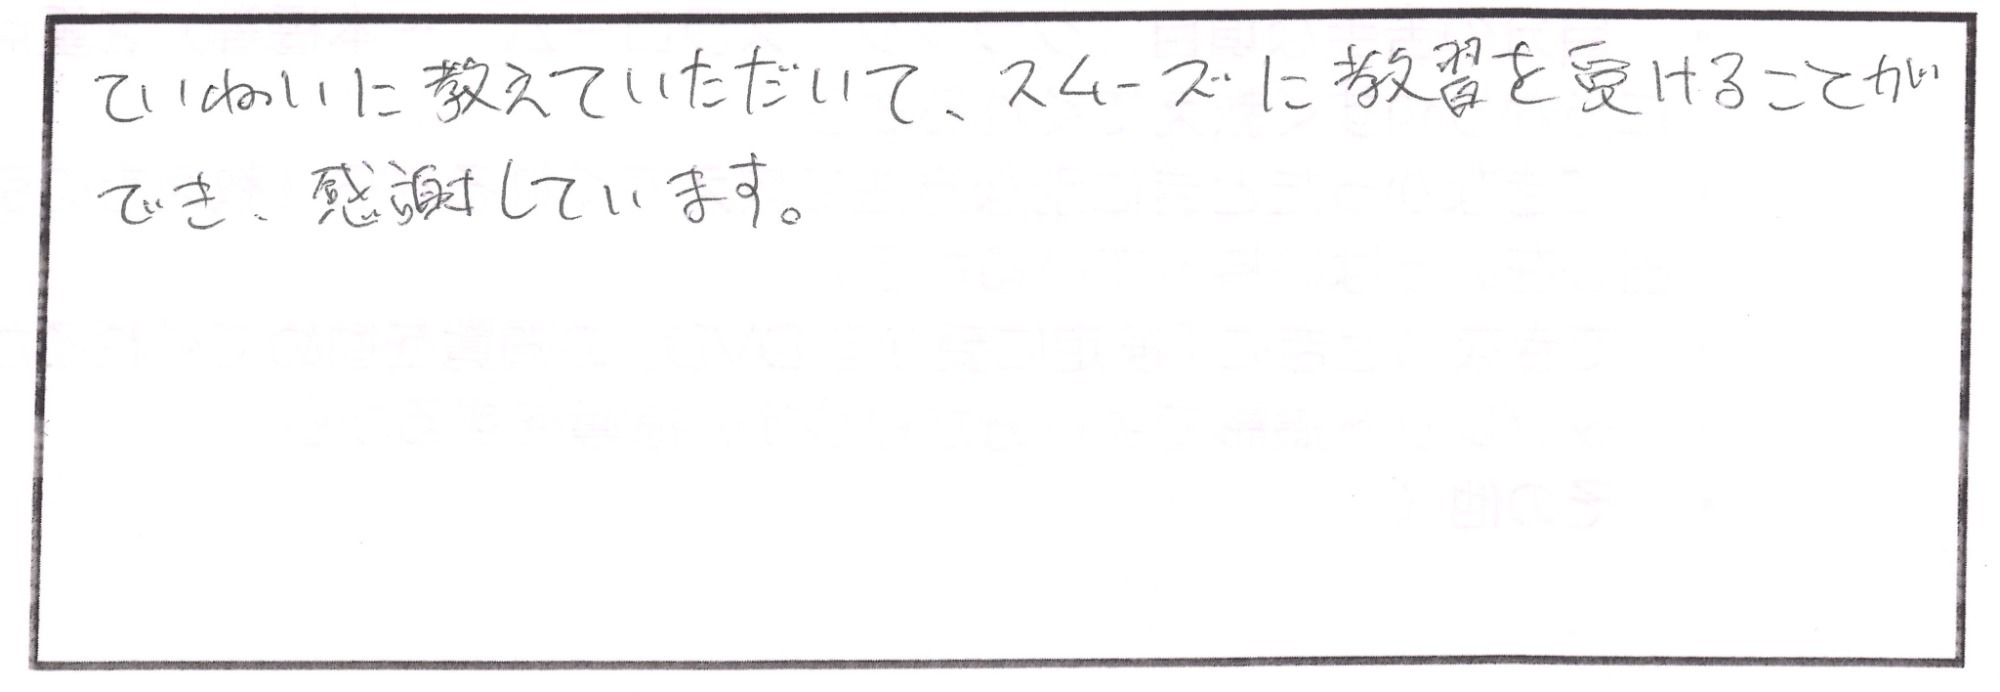 ていねいに教えていただいて、スムーズに教習を受けることが
でき、感謝しています。